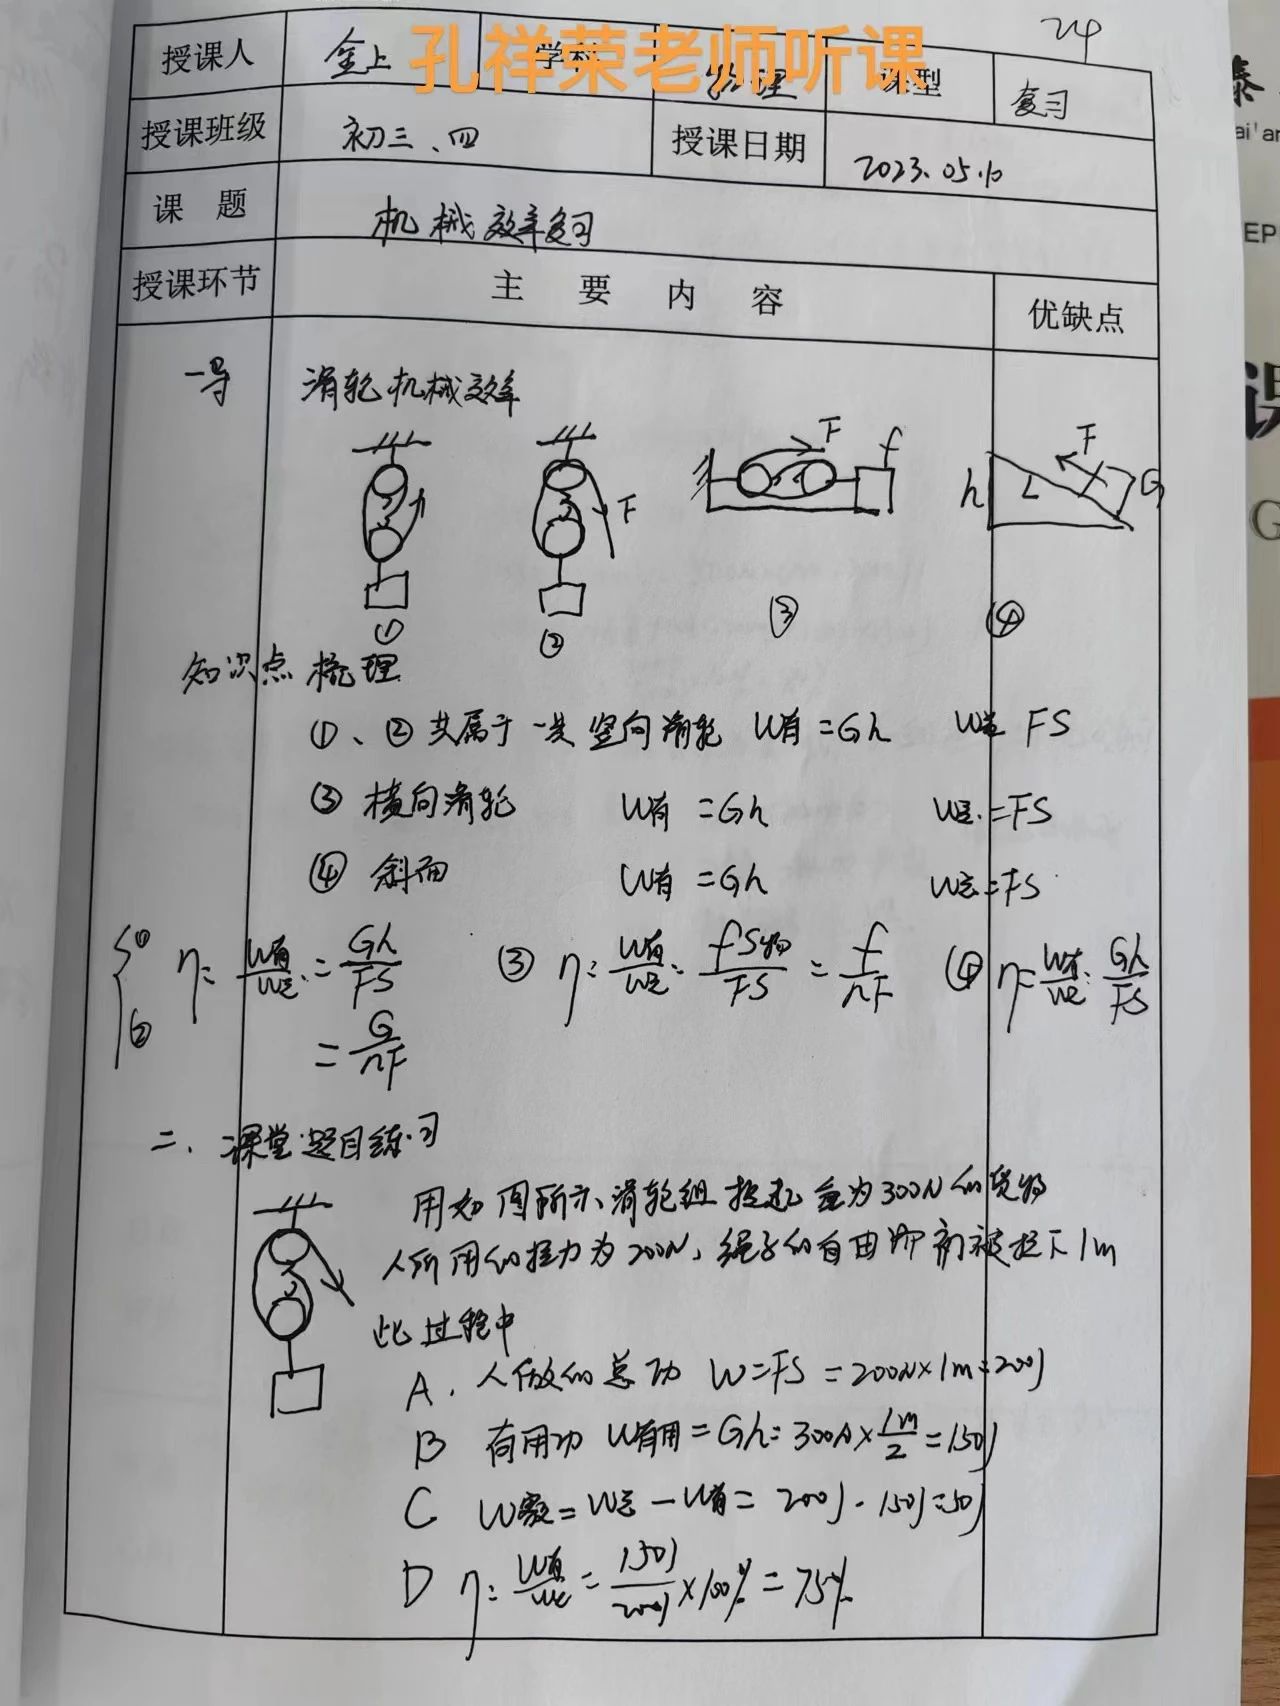 24
孔祥荣老师听课
授课人 金上 学科 物理 课型 复习
授课班级 初三、四 授课日期 2023.05.10
课 题 机械效率复习
授课环节 主 要 内 容 优缺点
一导 滑轮机械效率
F F f F h L G
① ② ③ ④
知识点梳理
①、②共属于一类竖向滑轮 W有=Gh W总 FS
③ 横向滑轮 W有=Gh W总=FS
④ 斜面 W有=Gh W总=FS
① ② η=W有/W总=Gh/FS ③ η=W有/W总=fS物/FS=f/nF ④ η=W有/W总=Gh/FS
=G/nF
二、课堂题目练习
用如图所示滑轮组提起重为300N的货物
人所用的拉力为200N,绳子的自由端向被拉下1m
此过程中
A. 人做的总功 W=FS=200N×1m=200J
B 有用功 W有用=Gh=300N×1m/2=150J
C W额=W总-W有=200J-150J=50J
D η=W有/W总=150J/200J×100%=75%